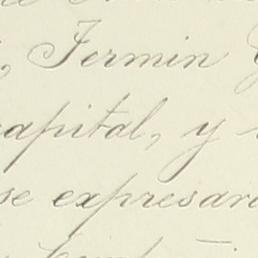 , Fermin
capital, y
se expresar